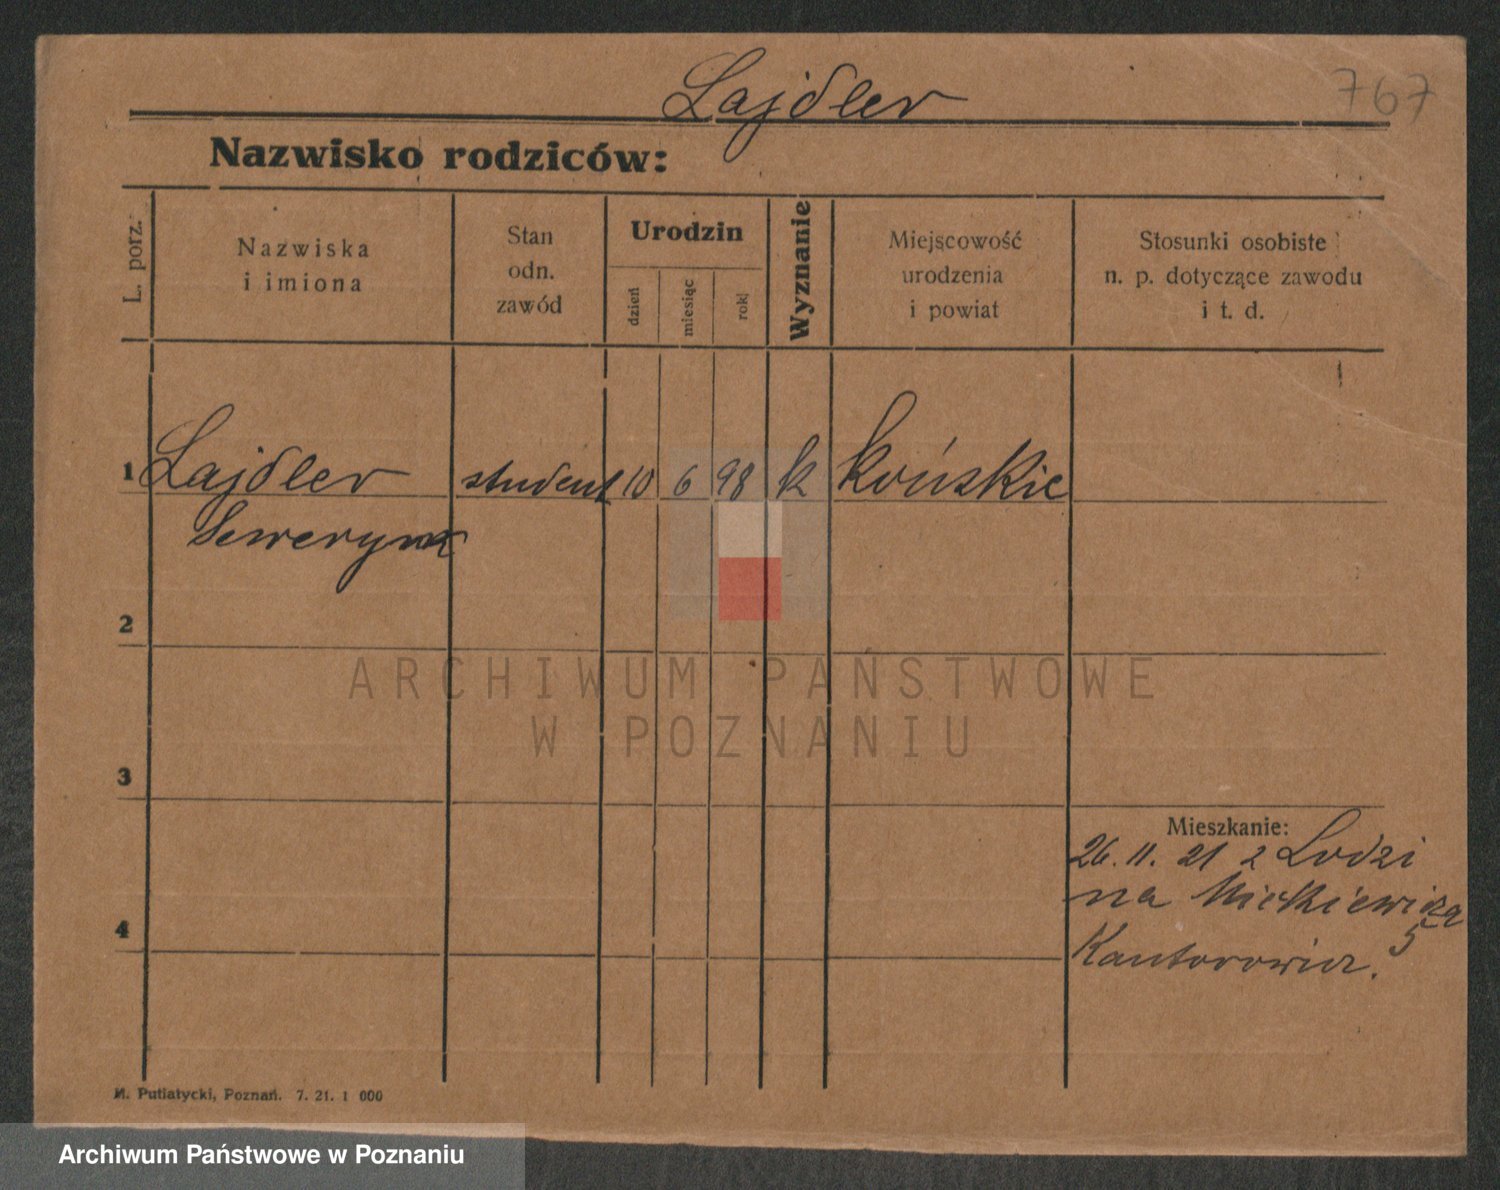 Lajdler
767
Nazwisko rodziców:
L. porz.
Nazwiska
i imiona
Stan
odn.
zawód
Urodzin
dzień
miesiąc
rok
Wyznanie
Miejscowość
urodzenia
i powiat
Stosunki osobiste
n. p. dotyczące zawodu
i t. d.
1 Lajdler student 10 6 98 k Końskie
Seweryn
2
3
Mieszkanie:
26. 11. 21 z Lodzi
na Mickiewicza
5
4
Kantorowicz.
M. Putiatycki, Poznań. 7. 21. 1 000
ARCHIWUM PAŃSTWOWE
W POZNANIU
Archiwum Państwowe w Poznaniu